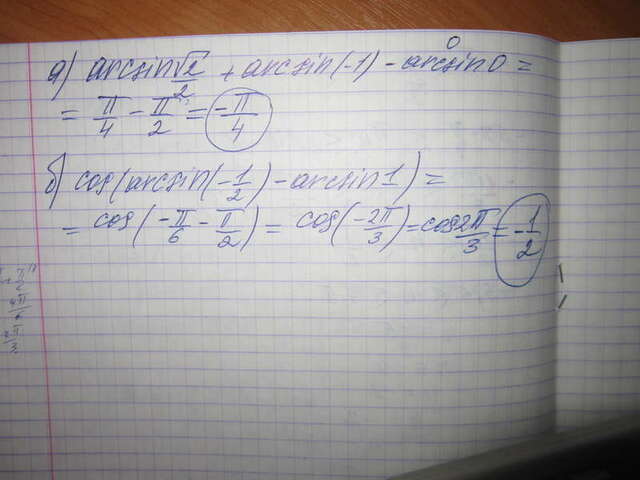 а) arcsin √2/2 + arcsin(-1) - arcsin 0 =
0
= π/4 - π/2 = -π/4
б) cos(arcsin(-1/2) - arcsin 1) =
= cos(-π/6 - π/2) = cos(-2π/3) = cos 2π/3 = -1/2